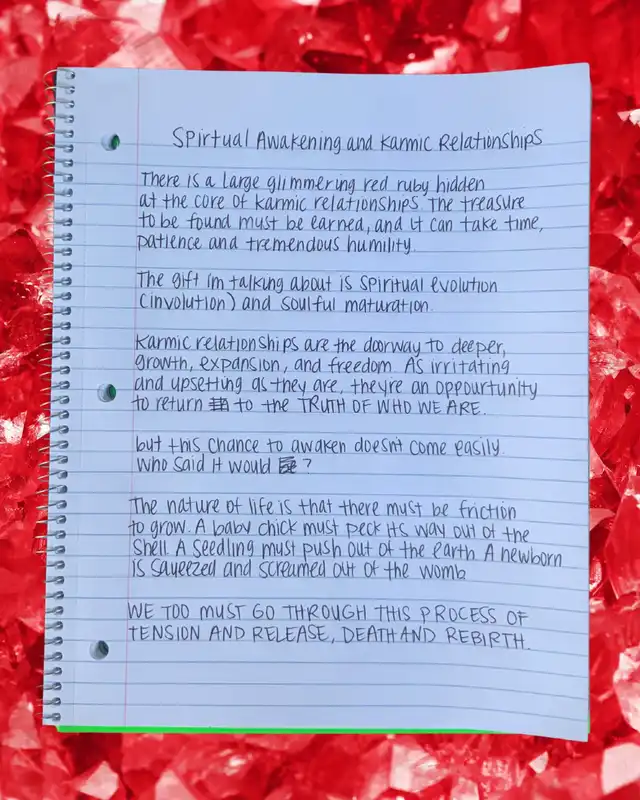 Spirtual Awakening and Karmic Relationships
There is a large glimmering red ruby hidden
at the core of karmic relationships. The treasure
to be found must be earned, and it can take time,
patience and tremendous humility.
The gift Im talking about is spiritual evolution
(involution) and soulful maturation.
Karmic relationships are the doorway to deeper,
growth, expansion, and freedom. As irritating
and upsetting as they are, they're an oppourtunity
to return to the TRUTH OF WHO WE ARE.
but this chance to awaken doesn't come easily.
who said it would ?
The nature of life is that there must be friction
to grow. A baby chick must peck its way out of the
shell. A seedling must push out of the earth. A newborn
is squeezed and screamed out of the womb.
WE TOO MUST GO THROUGH THIS PROCESS OF
TENSION AND RELEASE, DEATH AND REBIRTH.